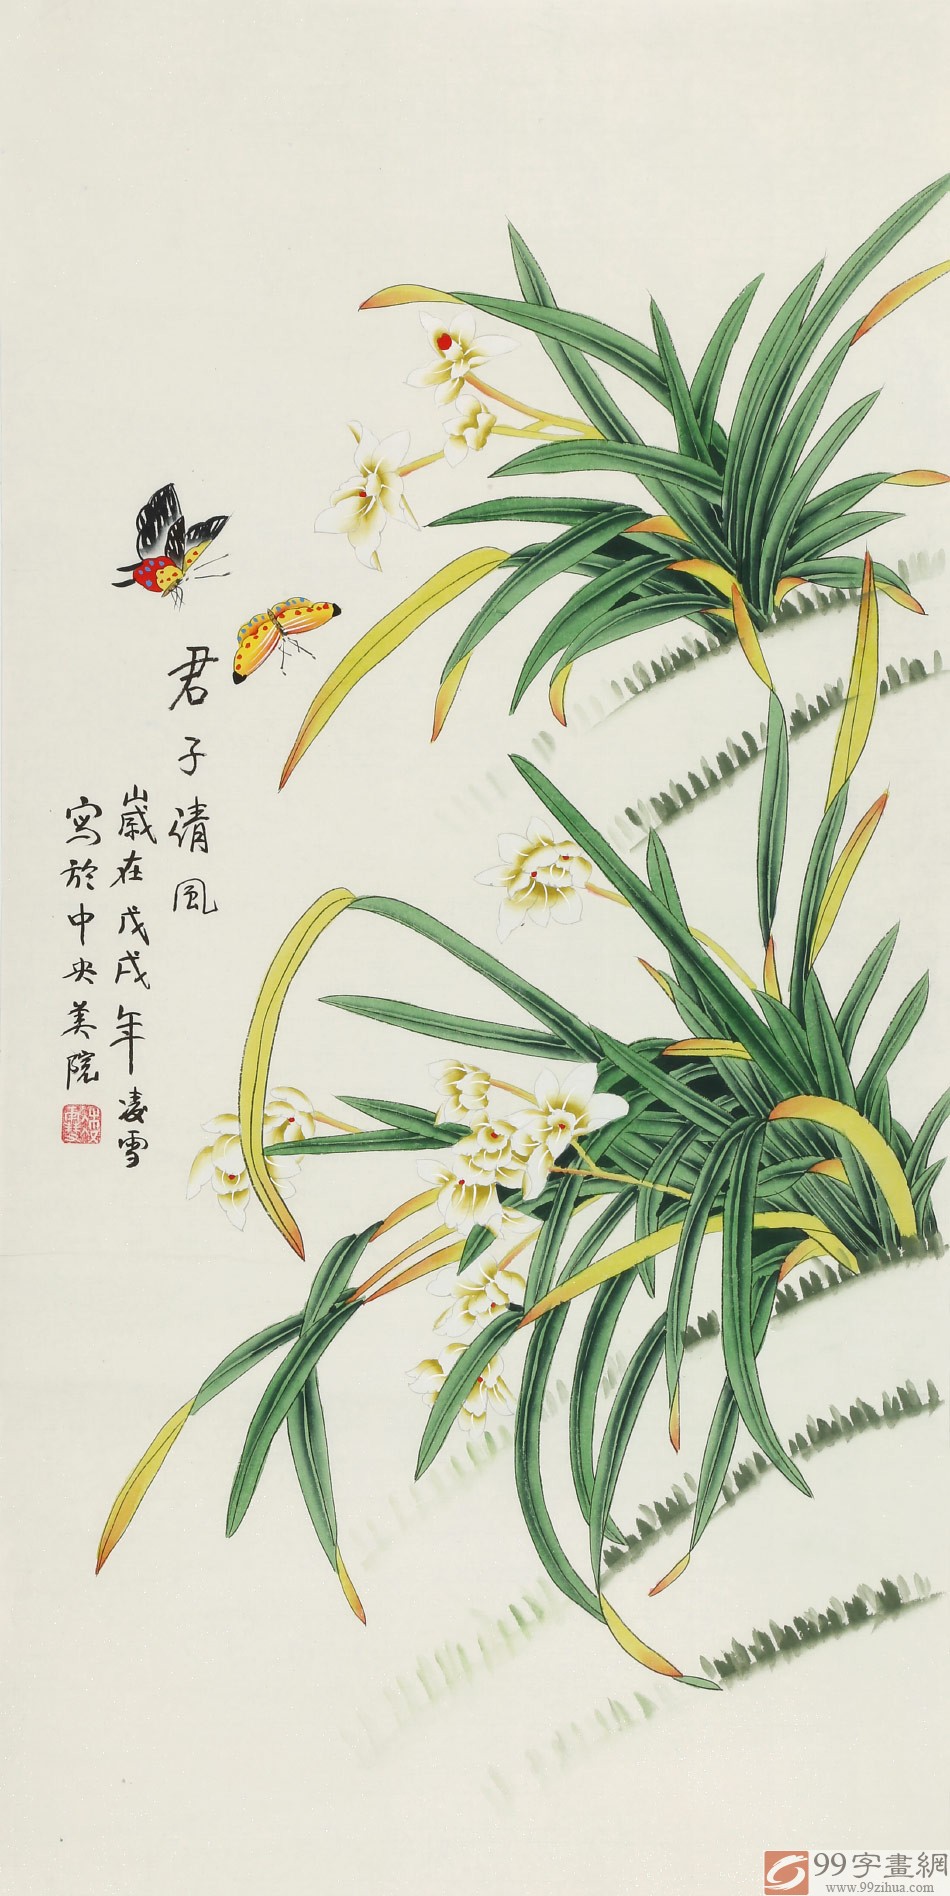 君子清风
歲在戊戌年凌雪
寫於中央美院
99字畫網
www.99zihua.com